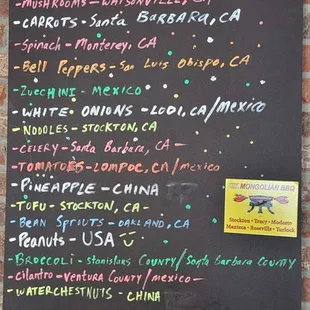 MUSHROOMS - WATSONVILLE, CA
CARROTS - Santa BARBARA, CA
Spinach - Monterey, CA
Bell Peppers - San Luis Obispo, CA
Zucchini - Mexico
WHITE ONIONS - LODI, CA/mexico
NOODLES - STOCKTON, CA
CELERY - Santa Barbara, CA -
TOMATOES - LOMPOC, CA/mexico
PINEAPPLE - CHINA
TOFU - STOCKTON, CA -
BEAN SPROUTS - OAKLAND, CA
Peanuts - USA
BROCCOLI - stanislaus COUNTY/Santa Barbara County
cilantro - VENTURA COUNTY/mexico -
WATERCHESTNUTS - CHINA
MONGOLIAN BBQ
Stockton - Tracy - Modesto
Manteca - Roseville - Turlock